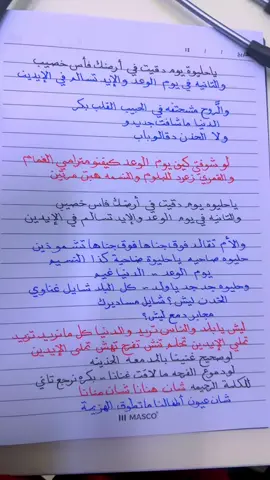 ياحليوة يوم دقيت في أرضك فأس خصيب
والتانيه في يوم الوعد والإيد تسالم في الإيدين
والروح شحتفه في الحبيب القلب بكر
الدنيا ماشافت جديدو
ولا الحزن دقالو باب
لو شوفتي كيف يوم الوعد كيفنو متراصي الغمام
والقمري زغرد للبلوم والنسمه هبت مرتين
ياحليوه يوم دقيت في أرضك فأس خصيب
والتانيه في يوم الوعد والإيد تسالم في الإيدين
والأم تقالد فوق جناها فوق جناها تشم وذين
حليوه صاحيه ياحليوة ضاحية كذا النسيم
يوم الوعد - الدنيا غيم
وحليوه جد جد ياولد - كل البلد شايل غناوي
الحزن ليش ؟ شايل مساديرك
مجابر دمع ليش ؟
ليش يابلد والناس تريد والدنيا كل مانريد تريد
تملي الإيدين تحلم تنش تفرح تهش تملي الإيدين
لوصحيح غنينا بالدمعه الحزينه
لودموع الفرحه ما لاقت غنانا - بكره نرجع تاني
للكلمة الرحيمه شان هنانا شان منانا
شان عيون أطفالنا ماتضوق الهزيمة
MASCO